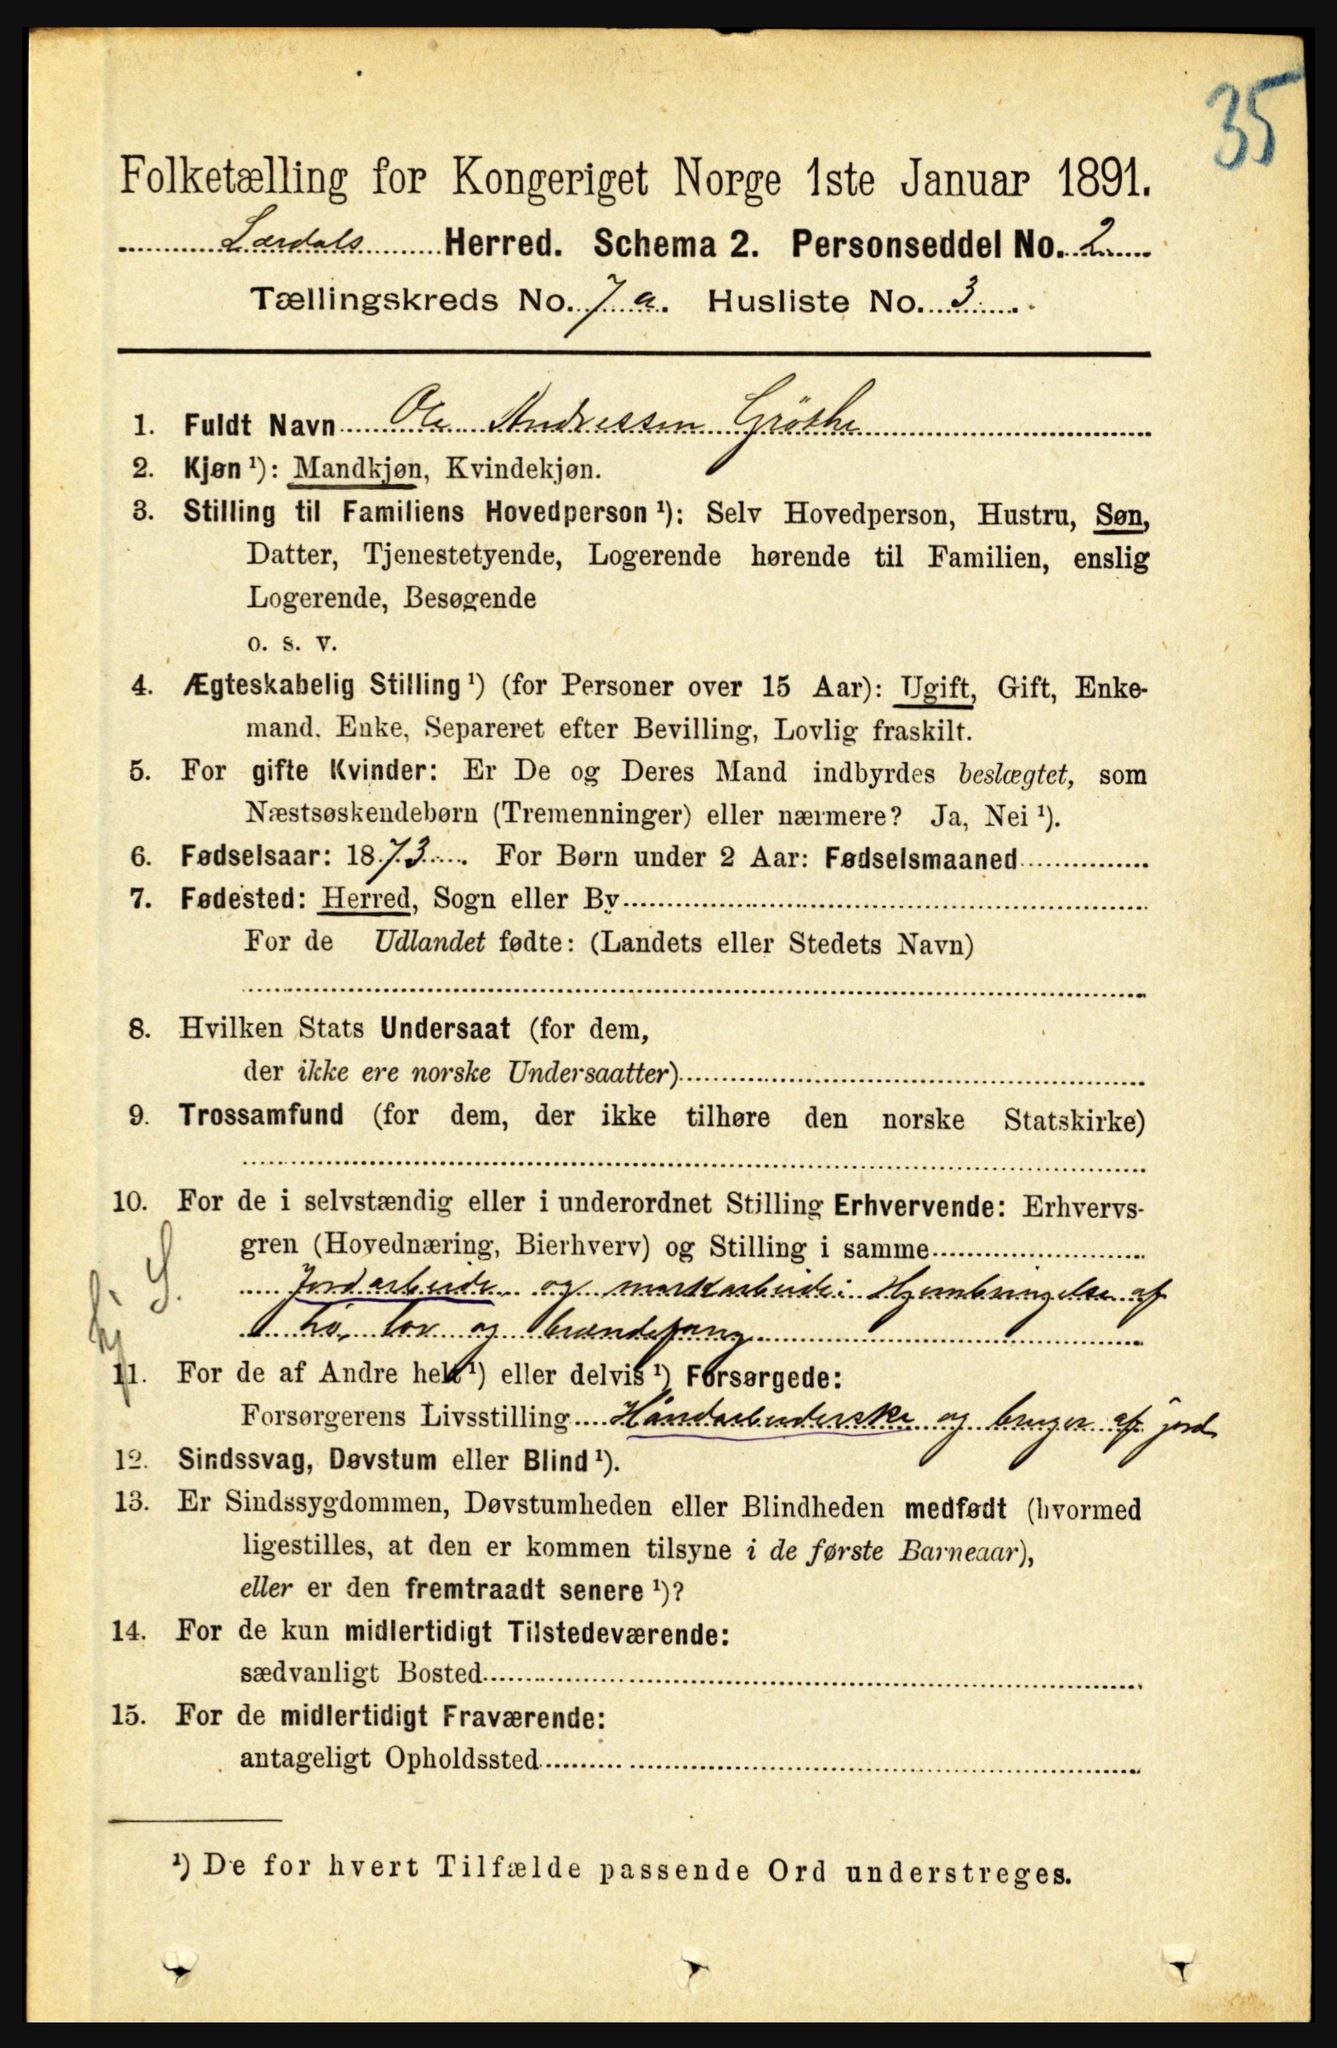 35
Folketælling for Kongeriget Norge 1ste Januar 1891.
Lærdals Herred. Schema 2. Personseddel No. 2
Tællingskreds No. 7 a. Husliste No. 3
1. Fuldt Navn Ole Andressen Grøthe
2. Kjøn ¹): Mandkjøn, Kvindekjøn.
3. Stilling til Familiens Hovedperson ¹): Selv Hovedperson, Hustru, Søn,
Datter, Tjenestetyende, Logerende hørende til Familien, enslig
Logerende, Besøgende
o. s. v.
4. Ægteskabelig Stilling ¹) (for Personer over 15 Aar): Ugift, Gift, Enke-
mand, Enke, Separeret efter Bevilling, Lovlig fraskilt.
5. For gifte Kvinder: Er De og Deres Mand indbyrdes beslægtet, som
Næstsøskendebørn (Tremenninger) eller nærmere? Ja, Nei ¹).
6. Fødselsaar: 1873. For Børn under 2 Aar: Fødselsmaaned
7. Fødested: Herred, Sogn eller By
For de Udlandet fødte: (Landets eller Stedets Navn)
8. Hvilken Stats Undersaat (for dem,
der ikke ere norske Undersaatter)
9. Trossamfund (for dem, der ikke tilhøre den norske Statskirke)
10. For de i selvstændig eller i underordnet Stilling Erhvervende: Erhvervs-
gren (Hovednæring, Bierhverv) og Stilling i samme
Jordarbeide og markarbeide: Hjembringelse af
hö, löv og brændefang
11. For de af Andre helt ¹) eller delvis ¹) Forsørgede:
Forsørgerens Livsstilling Håndarbeiderske og bruger af jord
12. Sindssvag, Døvstum eller Blind ¹).
13. Er Sindssygdommen, Døvstumheden eller Blindheden medfødt (hvormed
ligestilles, at den er kommen tilsyne i de første Barneaar),
eller er den fremtraadt senere ¹)?
14. For de kun midlertidigt Tilstedeværende:
sædvanligt Bosted
15. For de midlertidigt Fraværende:
antageligt Opholdssted
¹) De for hvert Tilfælde passende Ord understreges.